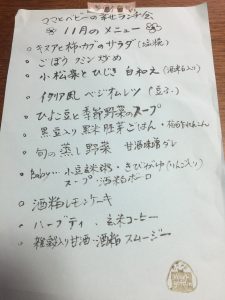 ママとベビーの幸せランチ会
11月のメニュー
キヌアと柿・カブのサラダ(塩糀)
ごぼう クミン炒め
小松菜とひじき 白和え(酒粕入り)
イタリア風 ベジオムレツ(豆ふ)
ひよこ豆と季節野菜のスープ
黒豆入り 黒米 胚芽ごはん・
旬の蒸し野菜 甘酒味噌ダレ
Baby… 小豆玄米粥・きびいが(りんご入り)
スープ・酒粕ボーロ
酒粕レモンケーキ
ハーブティ、玄米コーヒー
雑穀入り甘酒・酒粕 スムージー